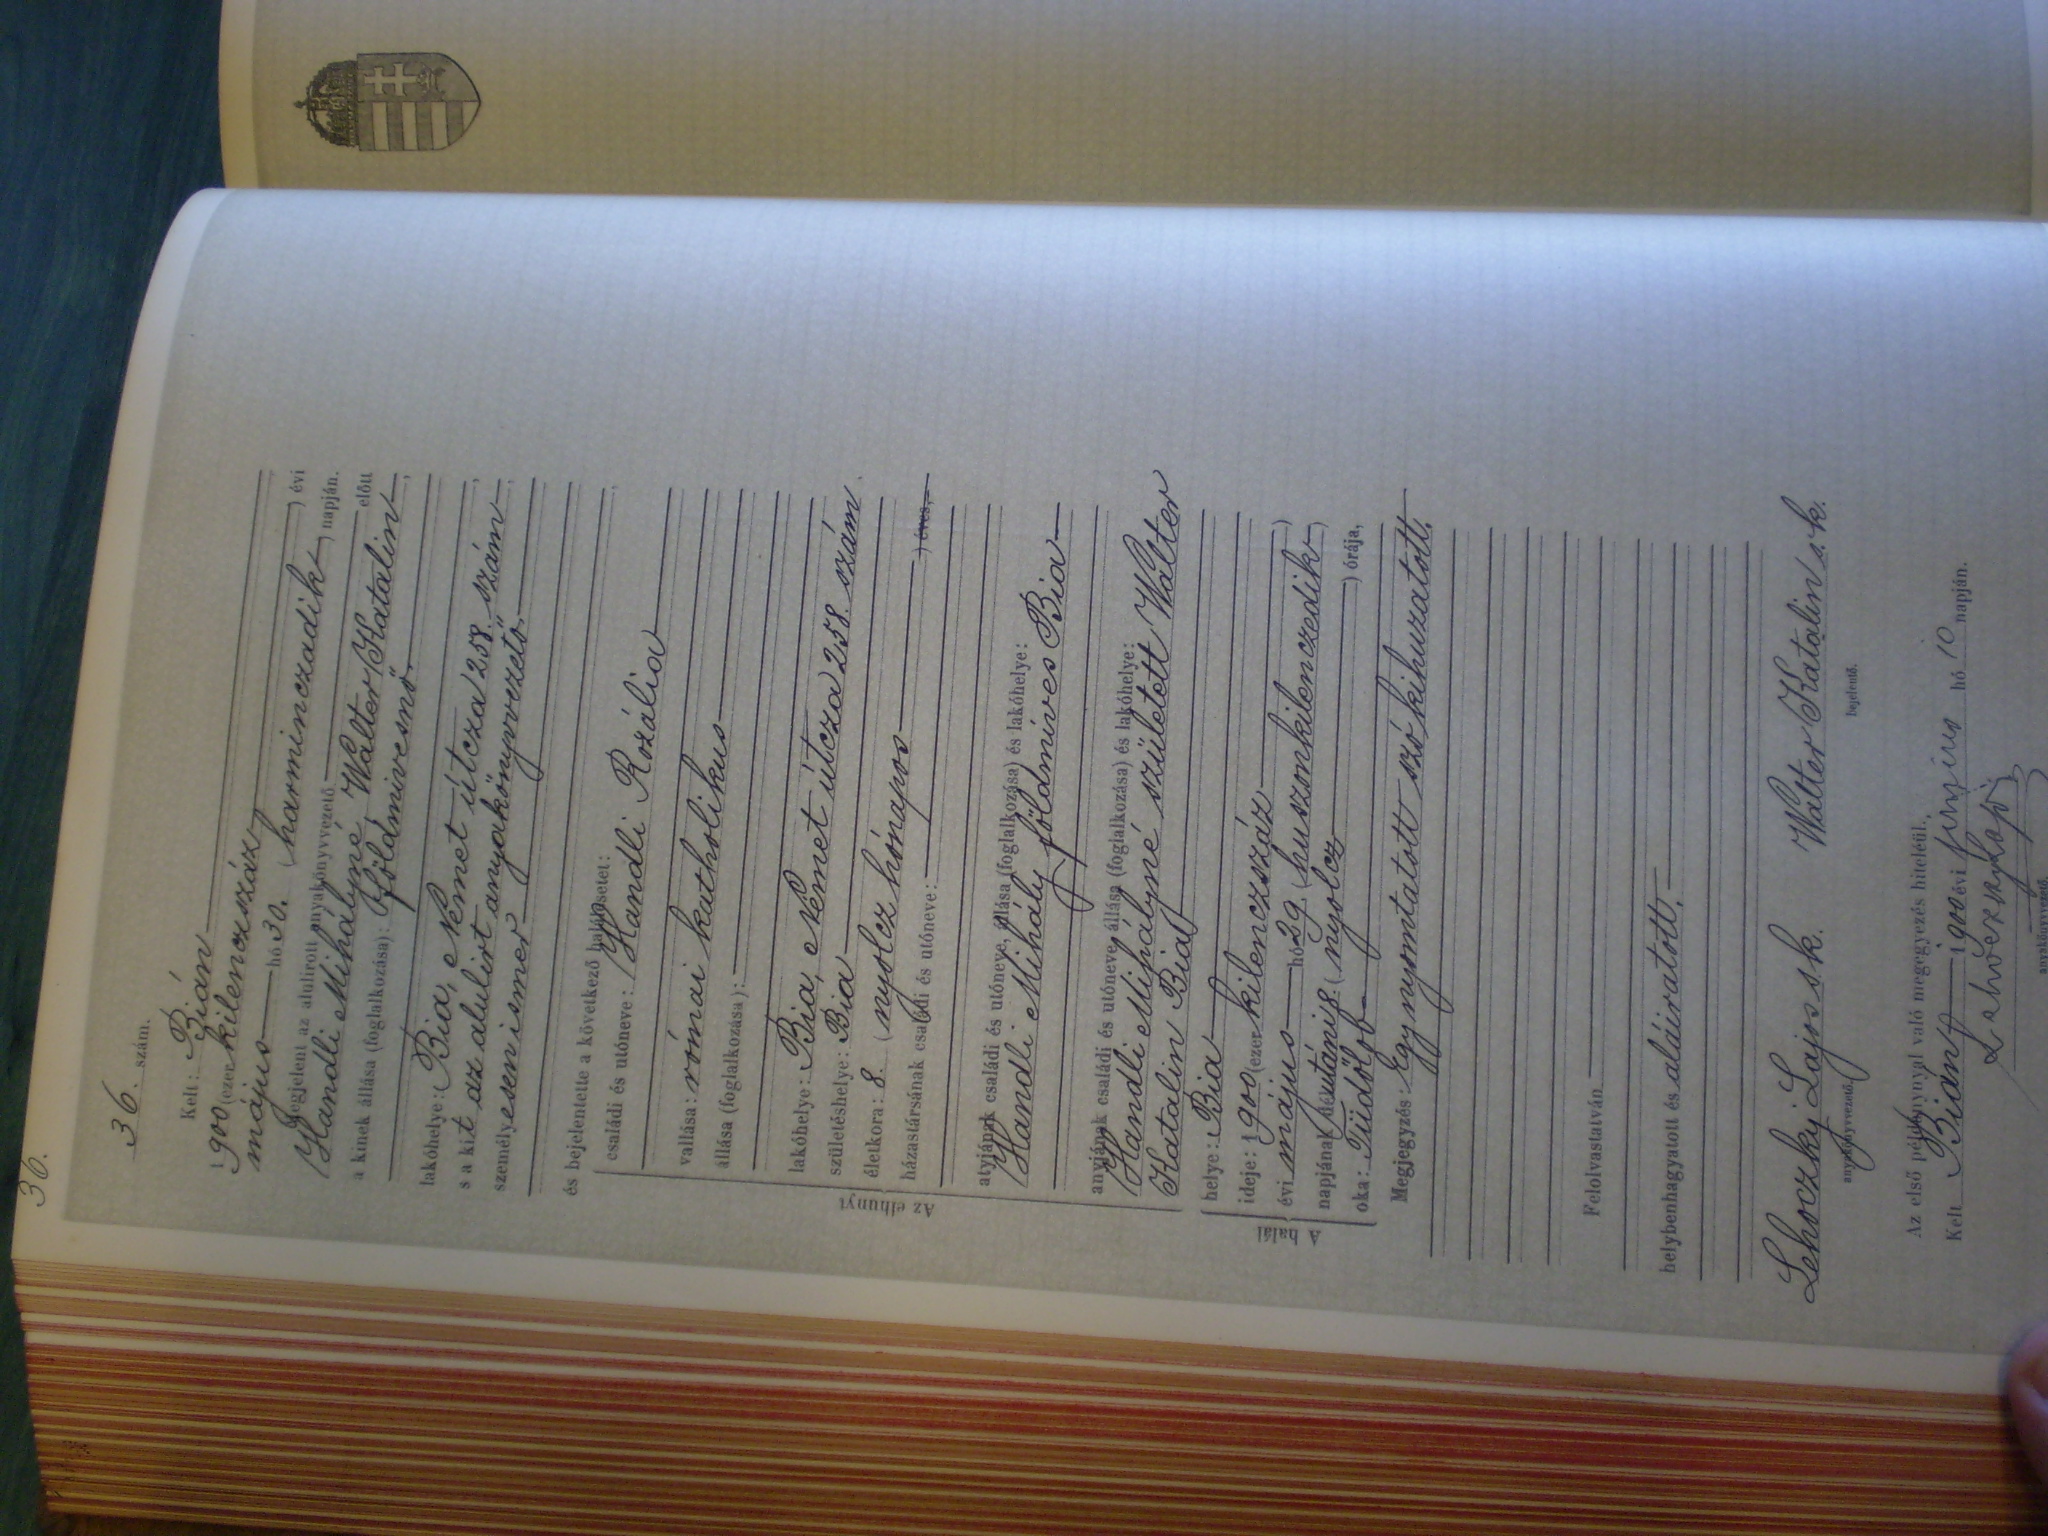 36.
36 szám.
Kelt: Bián
1900 (ezer kilenczszáz) évi
május hó 30. (harminczadik) napján.
Megjelent az alulirott anyakönyvvezető előtt
Handli Mihályné Walter Katalin,
a kinek állása (foglalkozása): földmivesnő
lakóhelye: Bia, Német útcza 258. szám,
s a kit az alulirt anyakönyvvezető
személyesen ismer
és bejelentette a következő halálesetet:
Az elhunyt
családi és utóneve: Handli Rozália
vallása: római katholikus
állása (foglalkozása):
lakóhelye: Bia, Német útcza 258. szám.
születéshelye: Bia
életkora: 8. (nyolcz hónapos) éves,
házastársának családi és utóneve:
atyjának családi és utóneve, állása (foglalkozása) és lakóhelye:
Handli Mihály földmíves Bia
anyjának családi és utóneve, állása (foglalkozása) és lakóhelye:
Handli Mihályné született Walter
Katalin Bia
A halál
helye: Bia
ideje: 1900 (ezer kilenczszáz)
évi május hó 29 (huszonkilenczedik)
napjának délutáni 8. (nyolcz) órája,
oka: Tüdőlob
Megjegyzés: Egy nyomtatott szó kihuzatott.
Felolvastatván
helybenhagyatott és aláiratott.
Lehoczky Lajos s.k. Walter Katalin s.k.
anyakönyvvezető. bejelentő.
Az első példánynyal való megegyezés hiteléül.
Kelt Bián 1900 évi junius hó 10 napján.
Lehoczky Lajos
anyakönyvvezető.